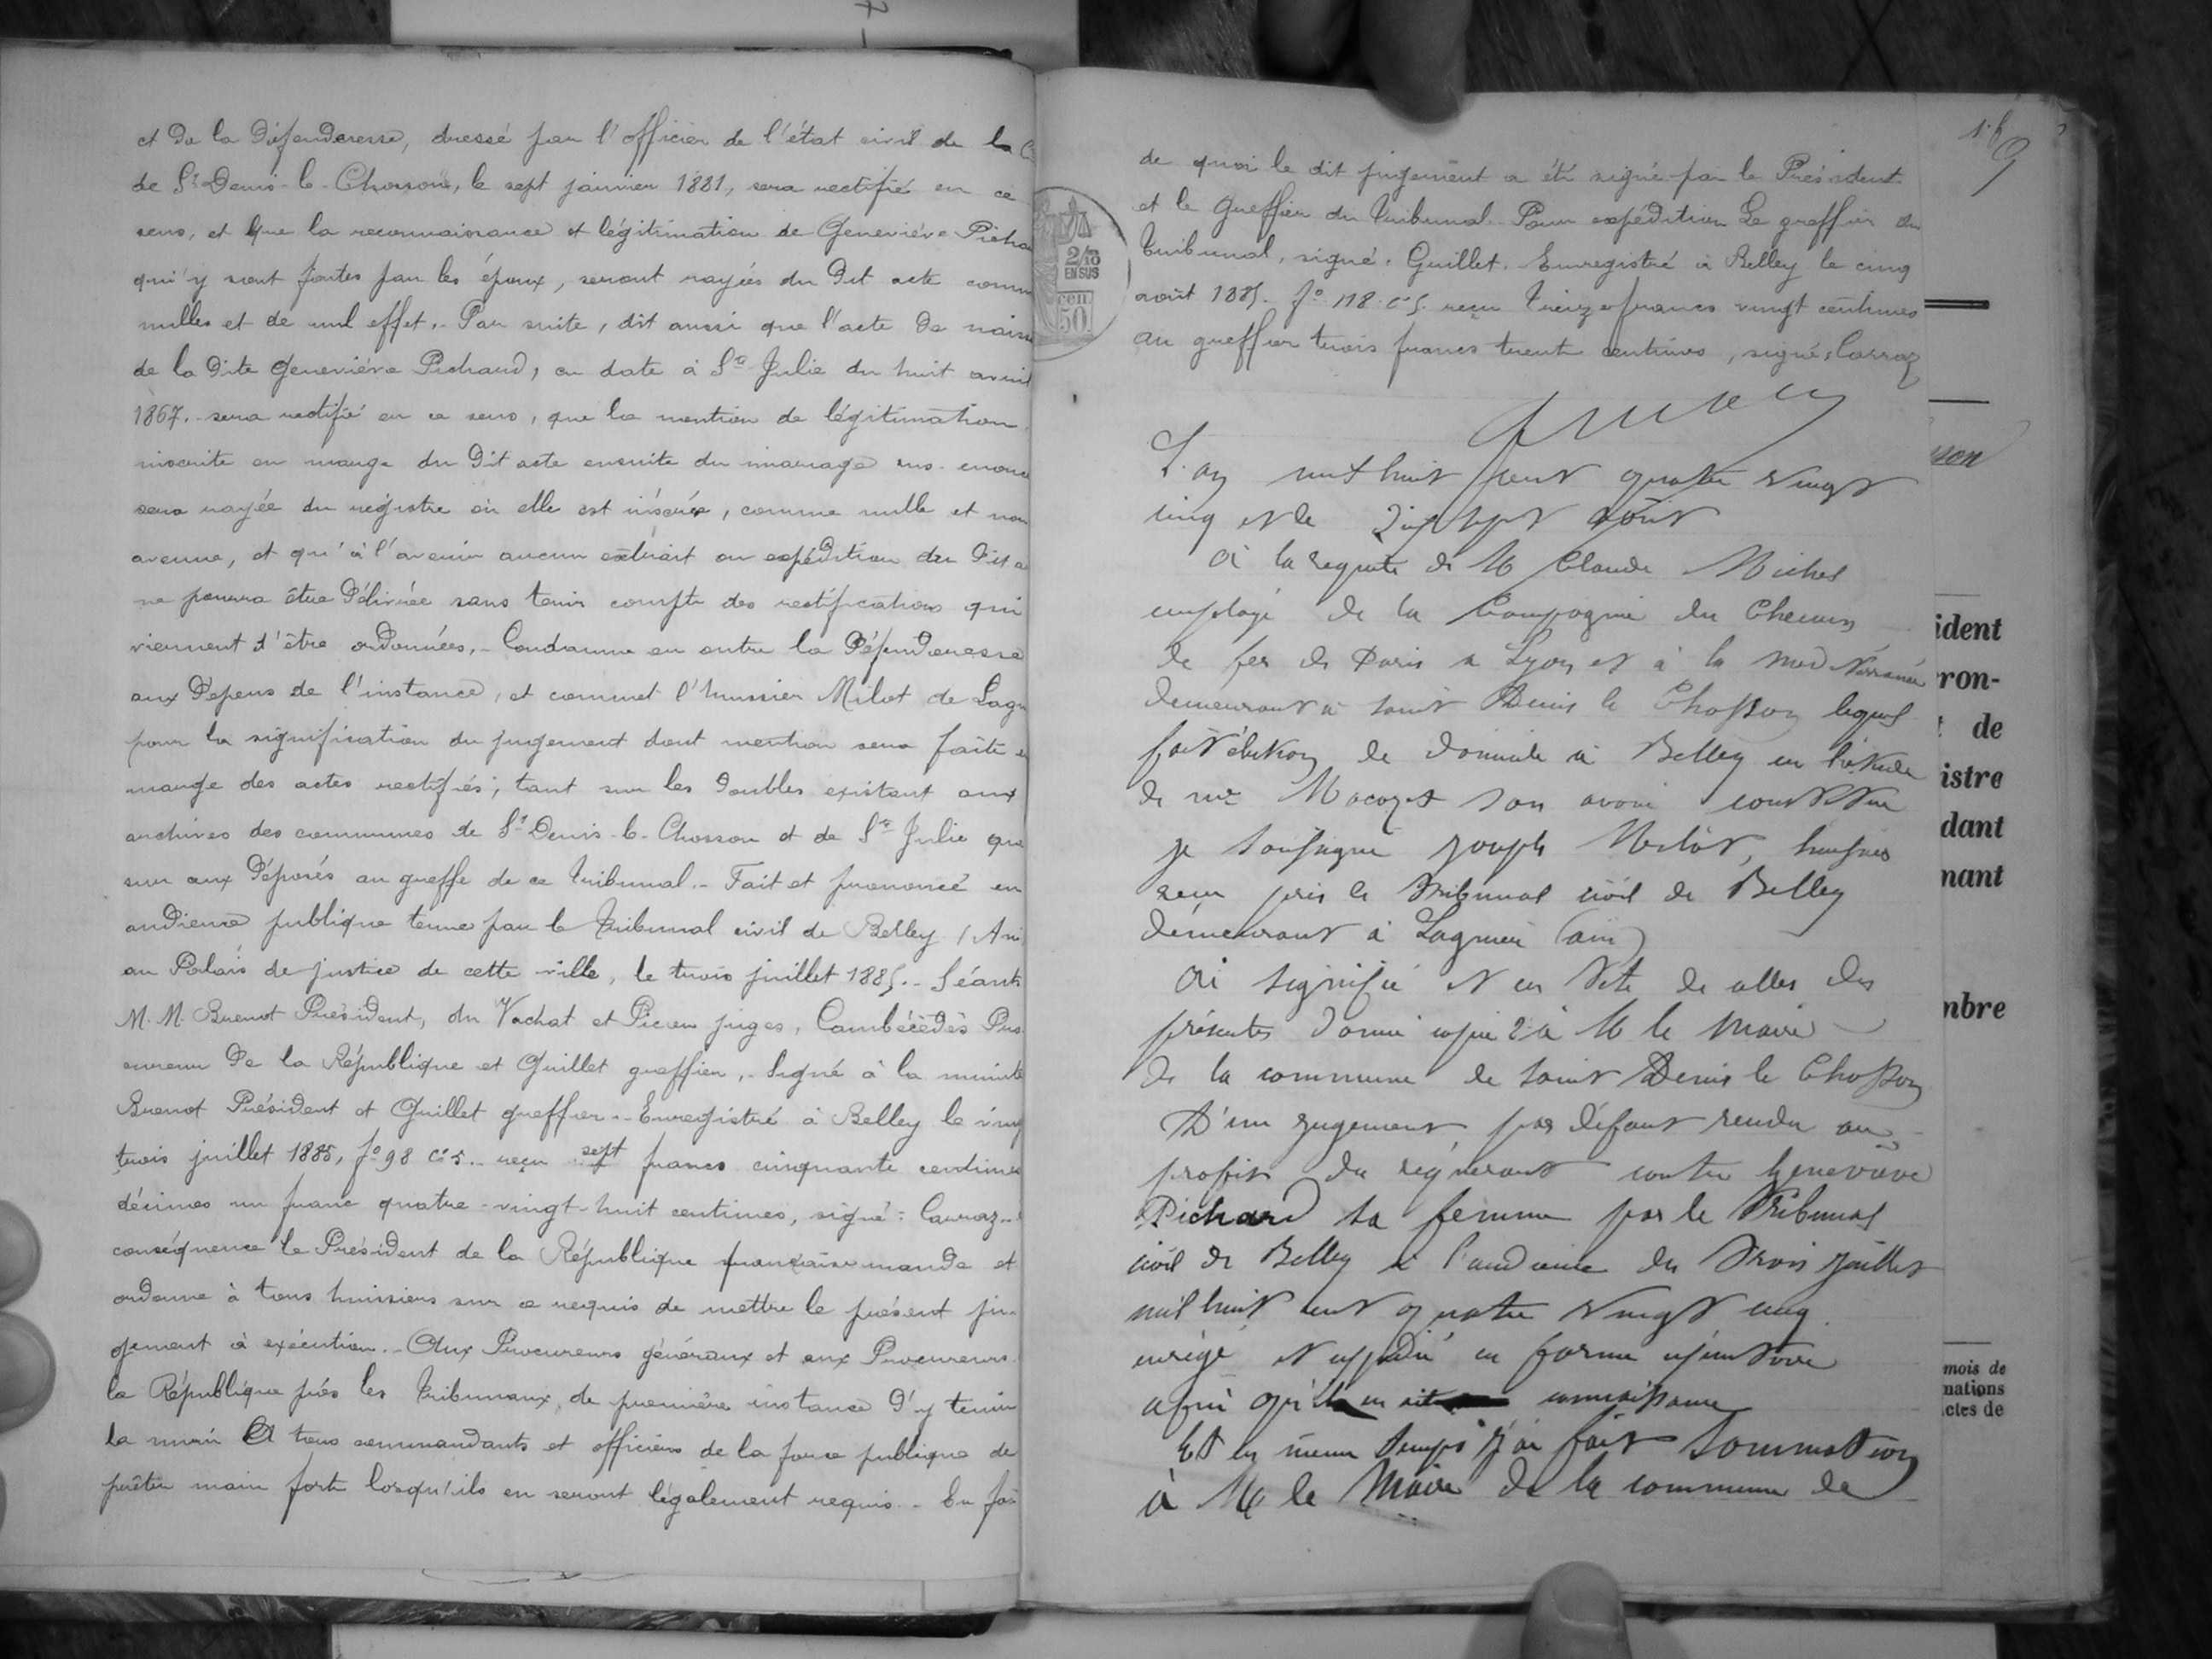 et de la défenderesse, dressé par l'officier de l'état civil de la C
de St Denis-le-Chosson, le sept janvier 1881, sera rectifié en ce
sens, et que la reconnaissance et légitimation de Geneviève Picha
qui y sont faites par les époux, seront rayées du dit acte comme
nulles et de nul effet. - Par suite, dit aussi que l'acte de naiss
de la dite Geneviève Pichard, en date à Ste Julie du huit avril
1867. sera rectifié en ce sens, que la mention de légitimation
inscrite en marge du dit acte ensuite du mariage sus-énoncé
sera rayée du registre où elle est insérée, comme nulle et non
avenue, et qu'à l'avenir aucun extrait ou expédition du dit a
ne pourra être délivrée sans tenir compte des rectifications qui
viennent d'être ordonnées. - Condamne en outre la défenderesse
aux dépens de l'instance, et commet l'huissier Milot de Lagn
pour la signification du jugement dont mention sera faite en
marge des actes rectifiés; tant sur les doubles existant aux
archives des communes de St Denis-le-Chosson et de Ste Julie que
sur aux déposés au greffe de ce tribunal. - Fait et prononcé en
audience publique tenue par le tribunal civil de Belley (Ain
au Palais de justice de cette ville, le trois juillet 1885. - Séants
M.M. Buenot Président, du Vachat et juges, Pro
cureur de la République et Guillet greffier. - Signé à la minute
Buenot Président et Guillet greffier. - Enregistré à Belley le vingt
trois juillet 1885, fo 98 Ce 5. - reçu sept francs cinquante centimes
décimes un franc quatre-vingt-huit centimes, signé: Carraz. -
conséquence le Président de la République française mande et
ordonne à tous huissiers sur ce requis de mettre le présent ju-
gement à exécution. - Aux Procureurs généraux et aux Procureurs
la République près les tribunaux de première instance d'y tenir
la main Et tous commandants et officiers de la force publique de
prêter main forte lorsqu'ils en seront légalement requis. - En foi
169
de quoi le dit jugement a été signé par le Président
et le greffier du tribunal. Pour expédition Le greffier du
tribunal, signé: Guillet. Enregistré à Belley le cinq
août 1885. fo 118 ce 5. reçu treize francs vingt centimes
au greffier trois francs trente centimes, signé: Carraz
2/10
EN SUS
cen.
50
L'an mil huit cent quatre vingt
cinq et le dix sept août
à la requête de M Claude Michel
employé de la Compagnie du Chemin
de fer de Paris à Lyon et à la méditerranée
demeurant à saint Denis le Chosson lequel
fait élection de domicile à Belley en l'étude
de me son avoué constitué
je soussigné joseph huissier
reçu près le tribunal civil de Belley
demeurant à Lagnieu (ain)
ai signifié et en tête de celles des
présentes donné copie à M le maire
de la commune de saint Denis le Chosson
D'un jugement par défaut rendu au
profit du requérant contre Geneviève
Pichard sa femme par le Tribunal
civil de Belley à l'audience du trois juillet
mil huit cent quatre vingt cinq
enrégé et expédié en forme exécutoire
afin qu'il en ait connaissance
Et en même temps j'ai fait sommation
à M le Maire de la commune de
son
ident
ron-
de
istre
dant
nant
mbre
mois de
nations
ctes de